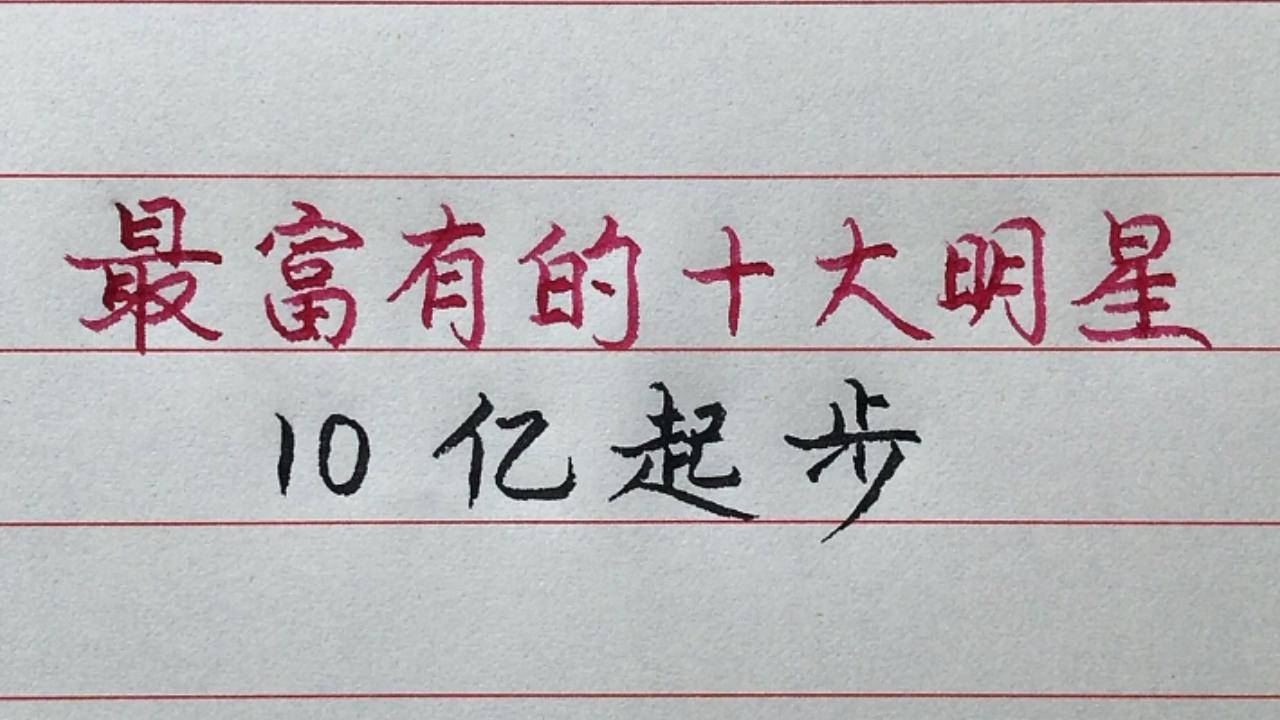 最富有的十大明星
10亿起步